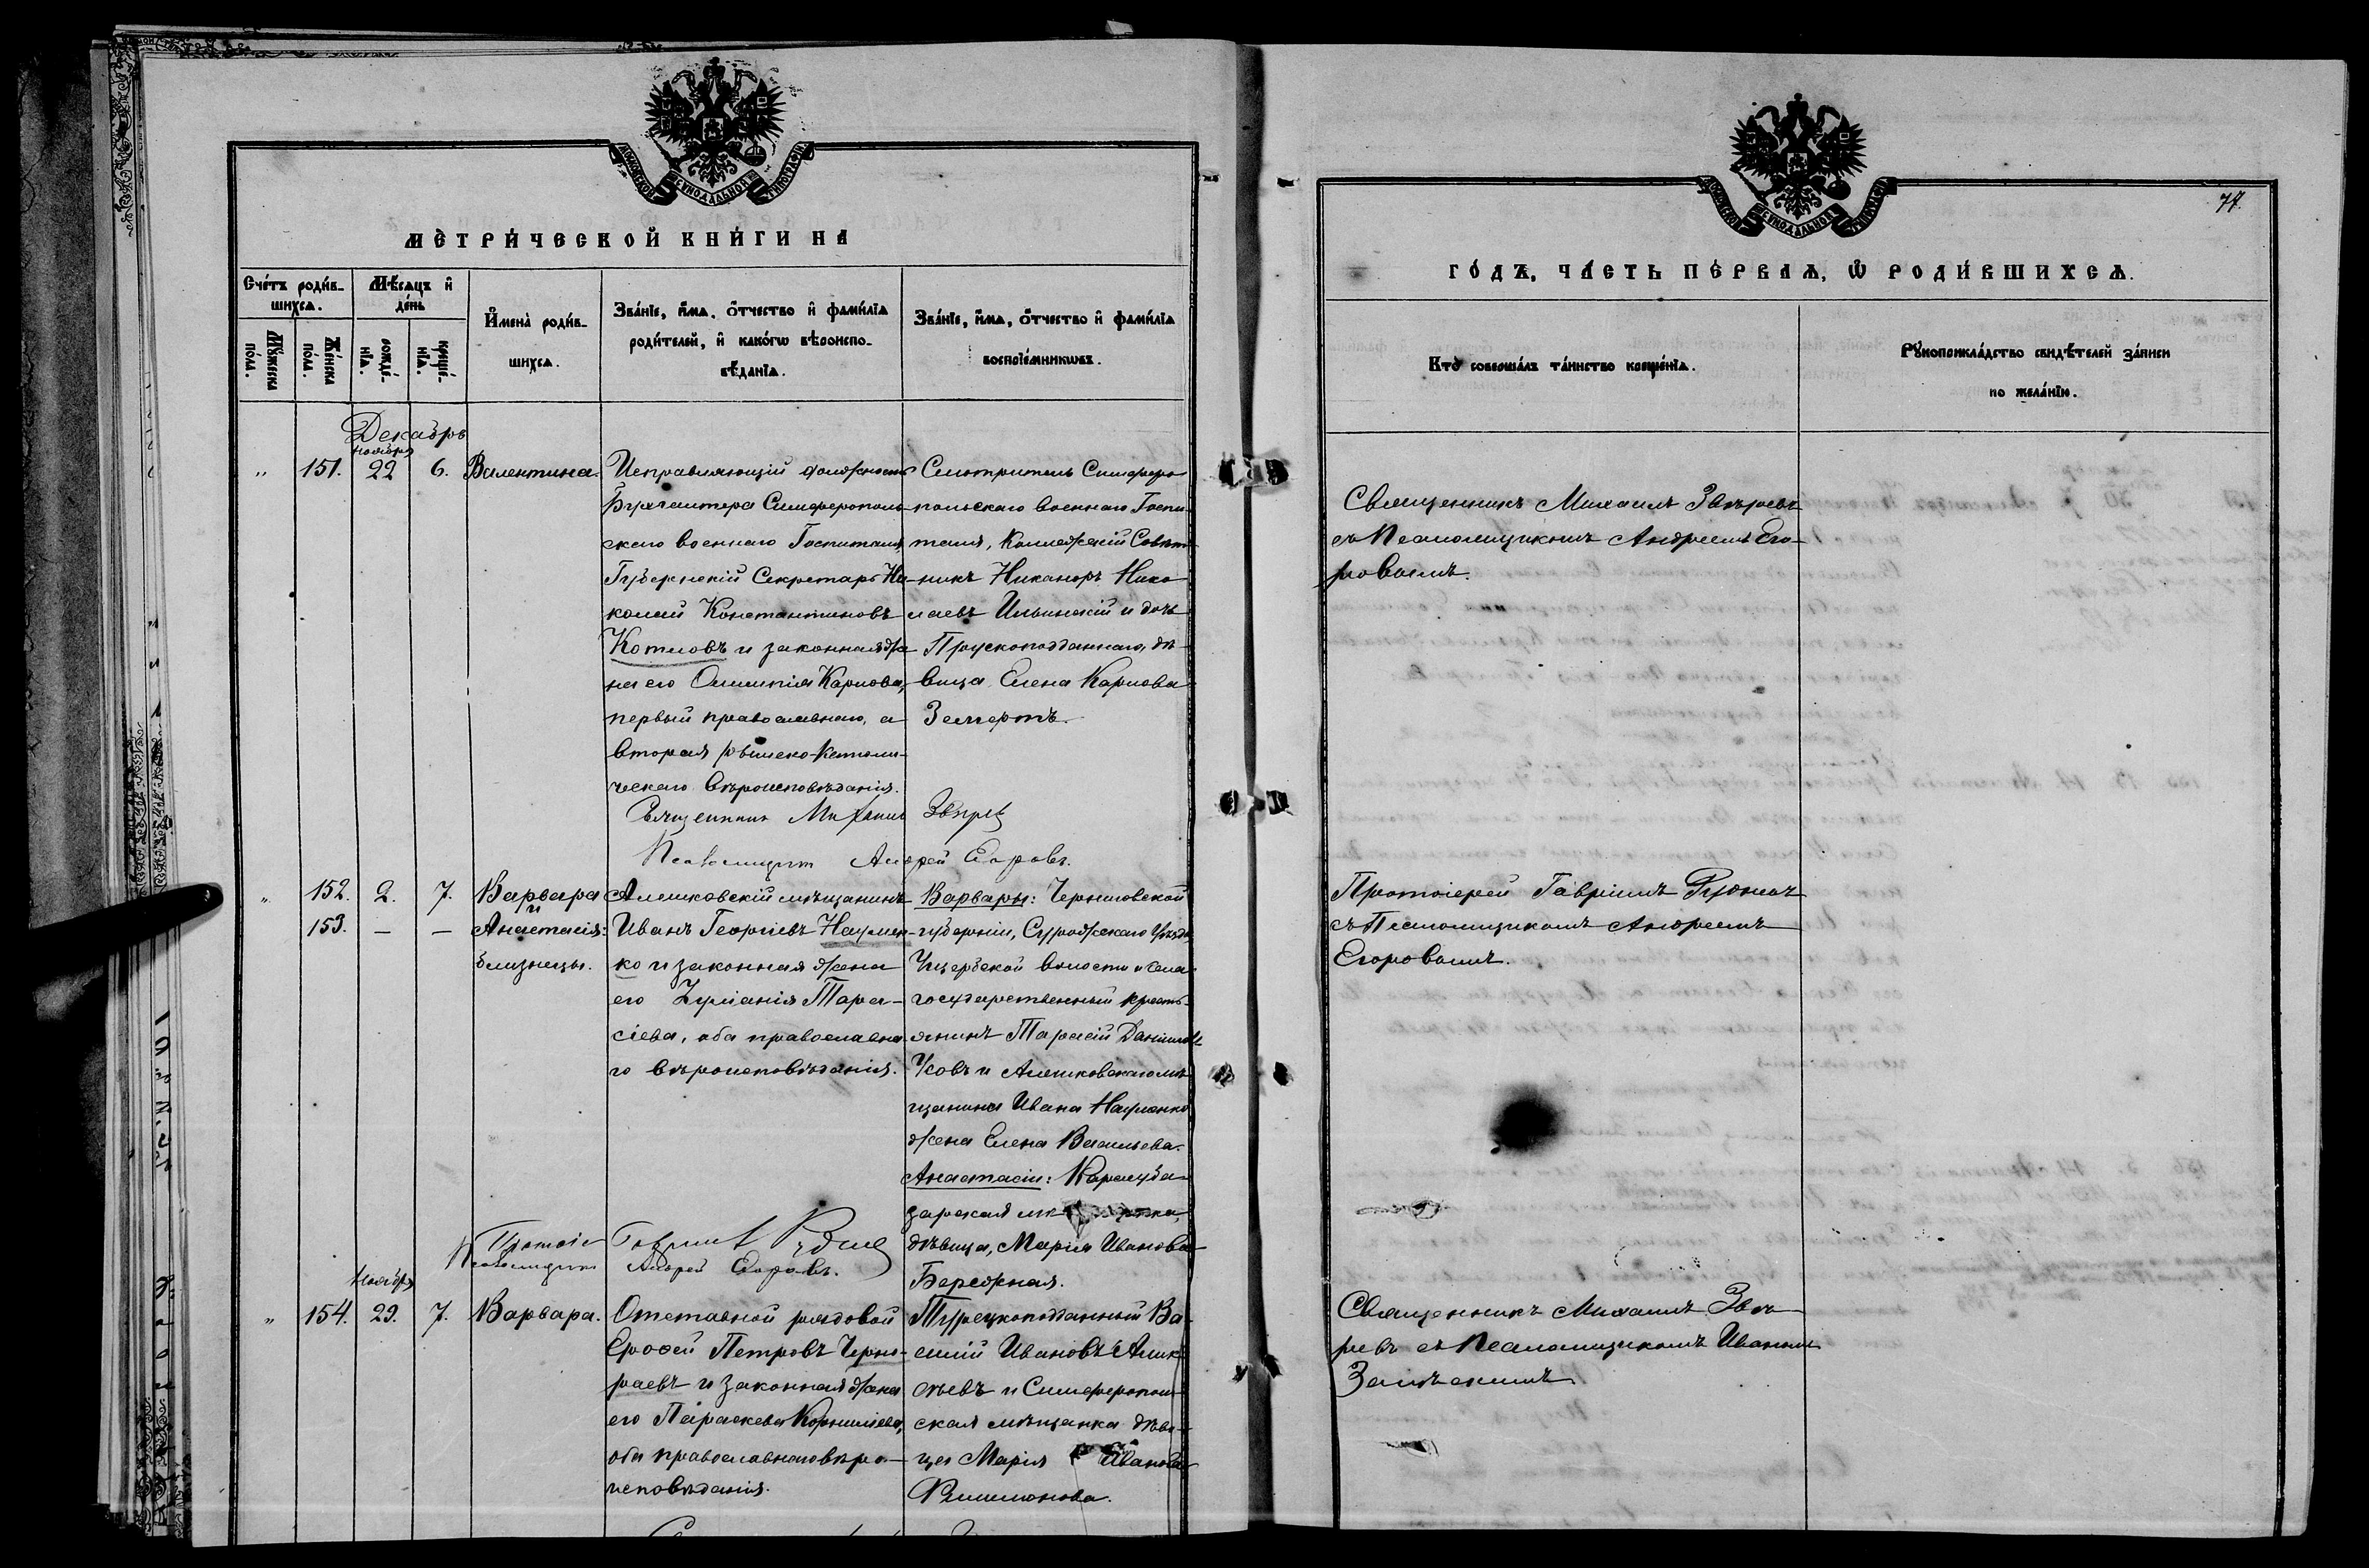 МЕТРИЧЕСКОЙ КНИГИ НА
Счетъ родив-
шихся.
Мѣсяцъ и
день
Мужеска
пола.
Женска
пола.
рожде-
нія.
креще-
нія.
Имена родив-
шихся.
Званіе, имя, отчество и фамилія
родителей, и какого вѣроиспо-
вѣданія.
Званіе, имя, отчество и фамилія
воспріемниковъ.
Декабрь
ноября
„ 151. 22 6. Валентина.
Исправляющій должность
Бухгалтера Симферополь-
скаго военнаго Госпиталя,
Губернскій Секретарь Ни-
колай Константиновъ
Котловъ и законная же-
на его Олимпія Карлова,
первый православнаго, а
вторая римско-католи-
ческаго вѣроисповѣданія.
Смотритель Симферо-
польскаго военнаго Госпи-
таля, Коллежскій Совѣт-
никъ Никаноръ Нико-
лаевъ Ильинскій и дочь
Прускоподданнаго, дѣ-
вица Елена Карлова
Священникъ Михаилъ Звѣрев
Псаломщикъ Андрей Егоровъ.
„ 152. 2. 7. Варвара
и
153. — — Анастасія:
близнецы.
Алешковскій мѣщанинъ
Иванъ Георгіевъ Наумен-
ко и законная жена
его Іуліанія Тара-
сіева, оба православна-
го вѣроисповѣданія.
Варвары: Черниговской
губерніи, Суражскаго уѣзда
волости и села
государственный кресть-
янинъ Тарасій Даніиловъ
Усовъ и Алешковскаго мѣ-
щанина Ивана Науменко
жена Елена Васильева.
Анастасіи: Карасуба-
зарская
дѣвица, Марія Иванова
Бережная.
Протоіе Гавріилъ
Псаломщикъ Андрей Егоровъ.
Ноября
„ 154. 29. 7. Варвара.
Отставной рядовой
Ерофей Петровъ Черно-
раевъ и законная жена
его Параскева Корниліева,
оба православнаго вѣро-
исповѣданія.
Турецкоподданный Ва-
силій Ивановъ Алек-
сѣевъ и Симферополь-
ская мѣщанка дѣви-
ца Марія Иванова
Филимонова.
77.
ГОДЪ, ЧАСТЬ ПЕРВАЯ, О РОДИВШИХСЯ.
Кто совершалъ таинство крещенія.
Рукоприкладство свидѣтелей записи
по желанію.
Священникъ Михаилъ Звѣревъ
съ Псаломщикомъ Андреемъ Его-
ровымъ.
Протоіерей Гавріилъ
съ Псаломщикомъ Андреемъ
Егоровымъ.
Священникъ Михаилъ Звѣ-
ревъ съ Псаломщикомъ Иваномъ